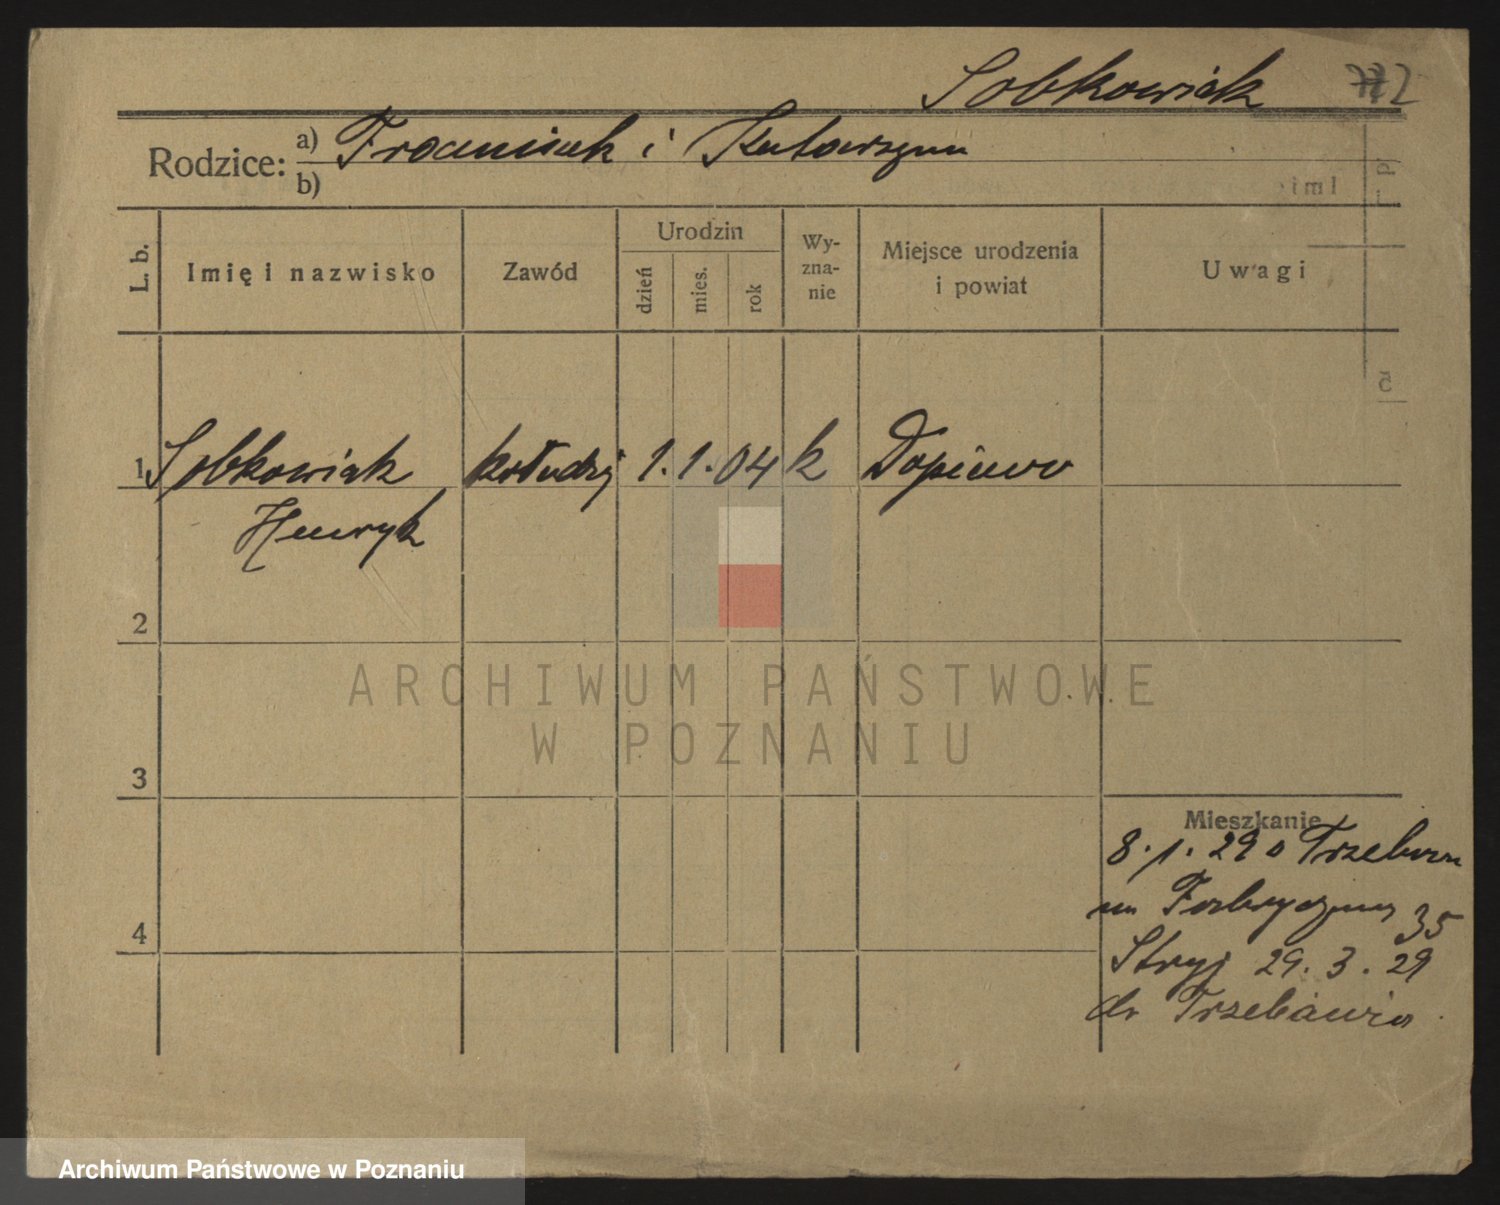 Sobkowiak
Rodzice: a) Franciszek i Katarzyna
b)
L. b.
Imię i nazwisko
Zawód
Urodzin
dzień
mies.
rok
Wy-
zna-
nie
Miejsce urodzenia
i powiat
Uwagi
1 Sobkowiak kołodziej 1. 1. 04 k Dopiewo
Henryk
2
3
4
Mieszkanie
8. 1. 29
Fabryczna 35
Stryj 29. 3. 29
Trzebawia
ARCHIWUM PAŃSTWOWE
W POZNANIU
Archiwum Państwowe w Poznaniu